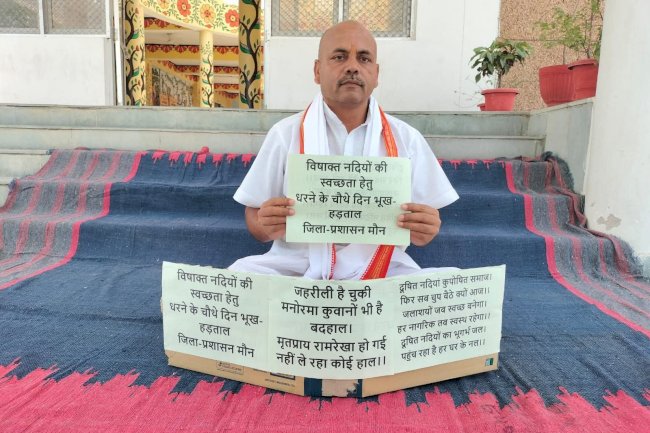 विषाक्त नदियों की
स्वच्छता हेतु
धरने के चौथे दिन भूख-
हड़ताल
जिला-प्रशासन मौन
विषाक्त नदियों की
स्वच्छता हेतु
धरने के चौथे दिन भूख-
हड़ताल
जिला-प्रशासन मौन
जहरीली है चुकी
मनोरमा कुवानों भी है
बदहाल।
मृतप्राय रामरेखा हो गई
नहीं ले रहा कोई हाल।।
दूषित नदियां कुपोषित समाज।
फिर सब चुप बैठे क्यों आज।।
जलाशयों जब स्वच्छ बनेगा।
हर नागरिक तब स्वस्थ रहेगा।।
दूषित नदियों का भूगर्भ जल।
पहुंच रहा है हर घर के नल।।